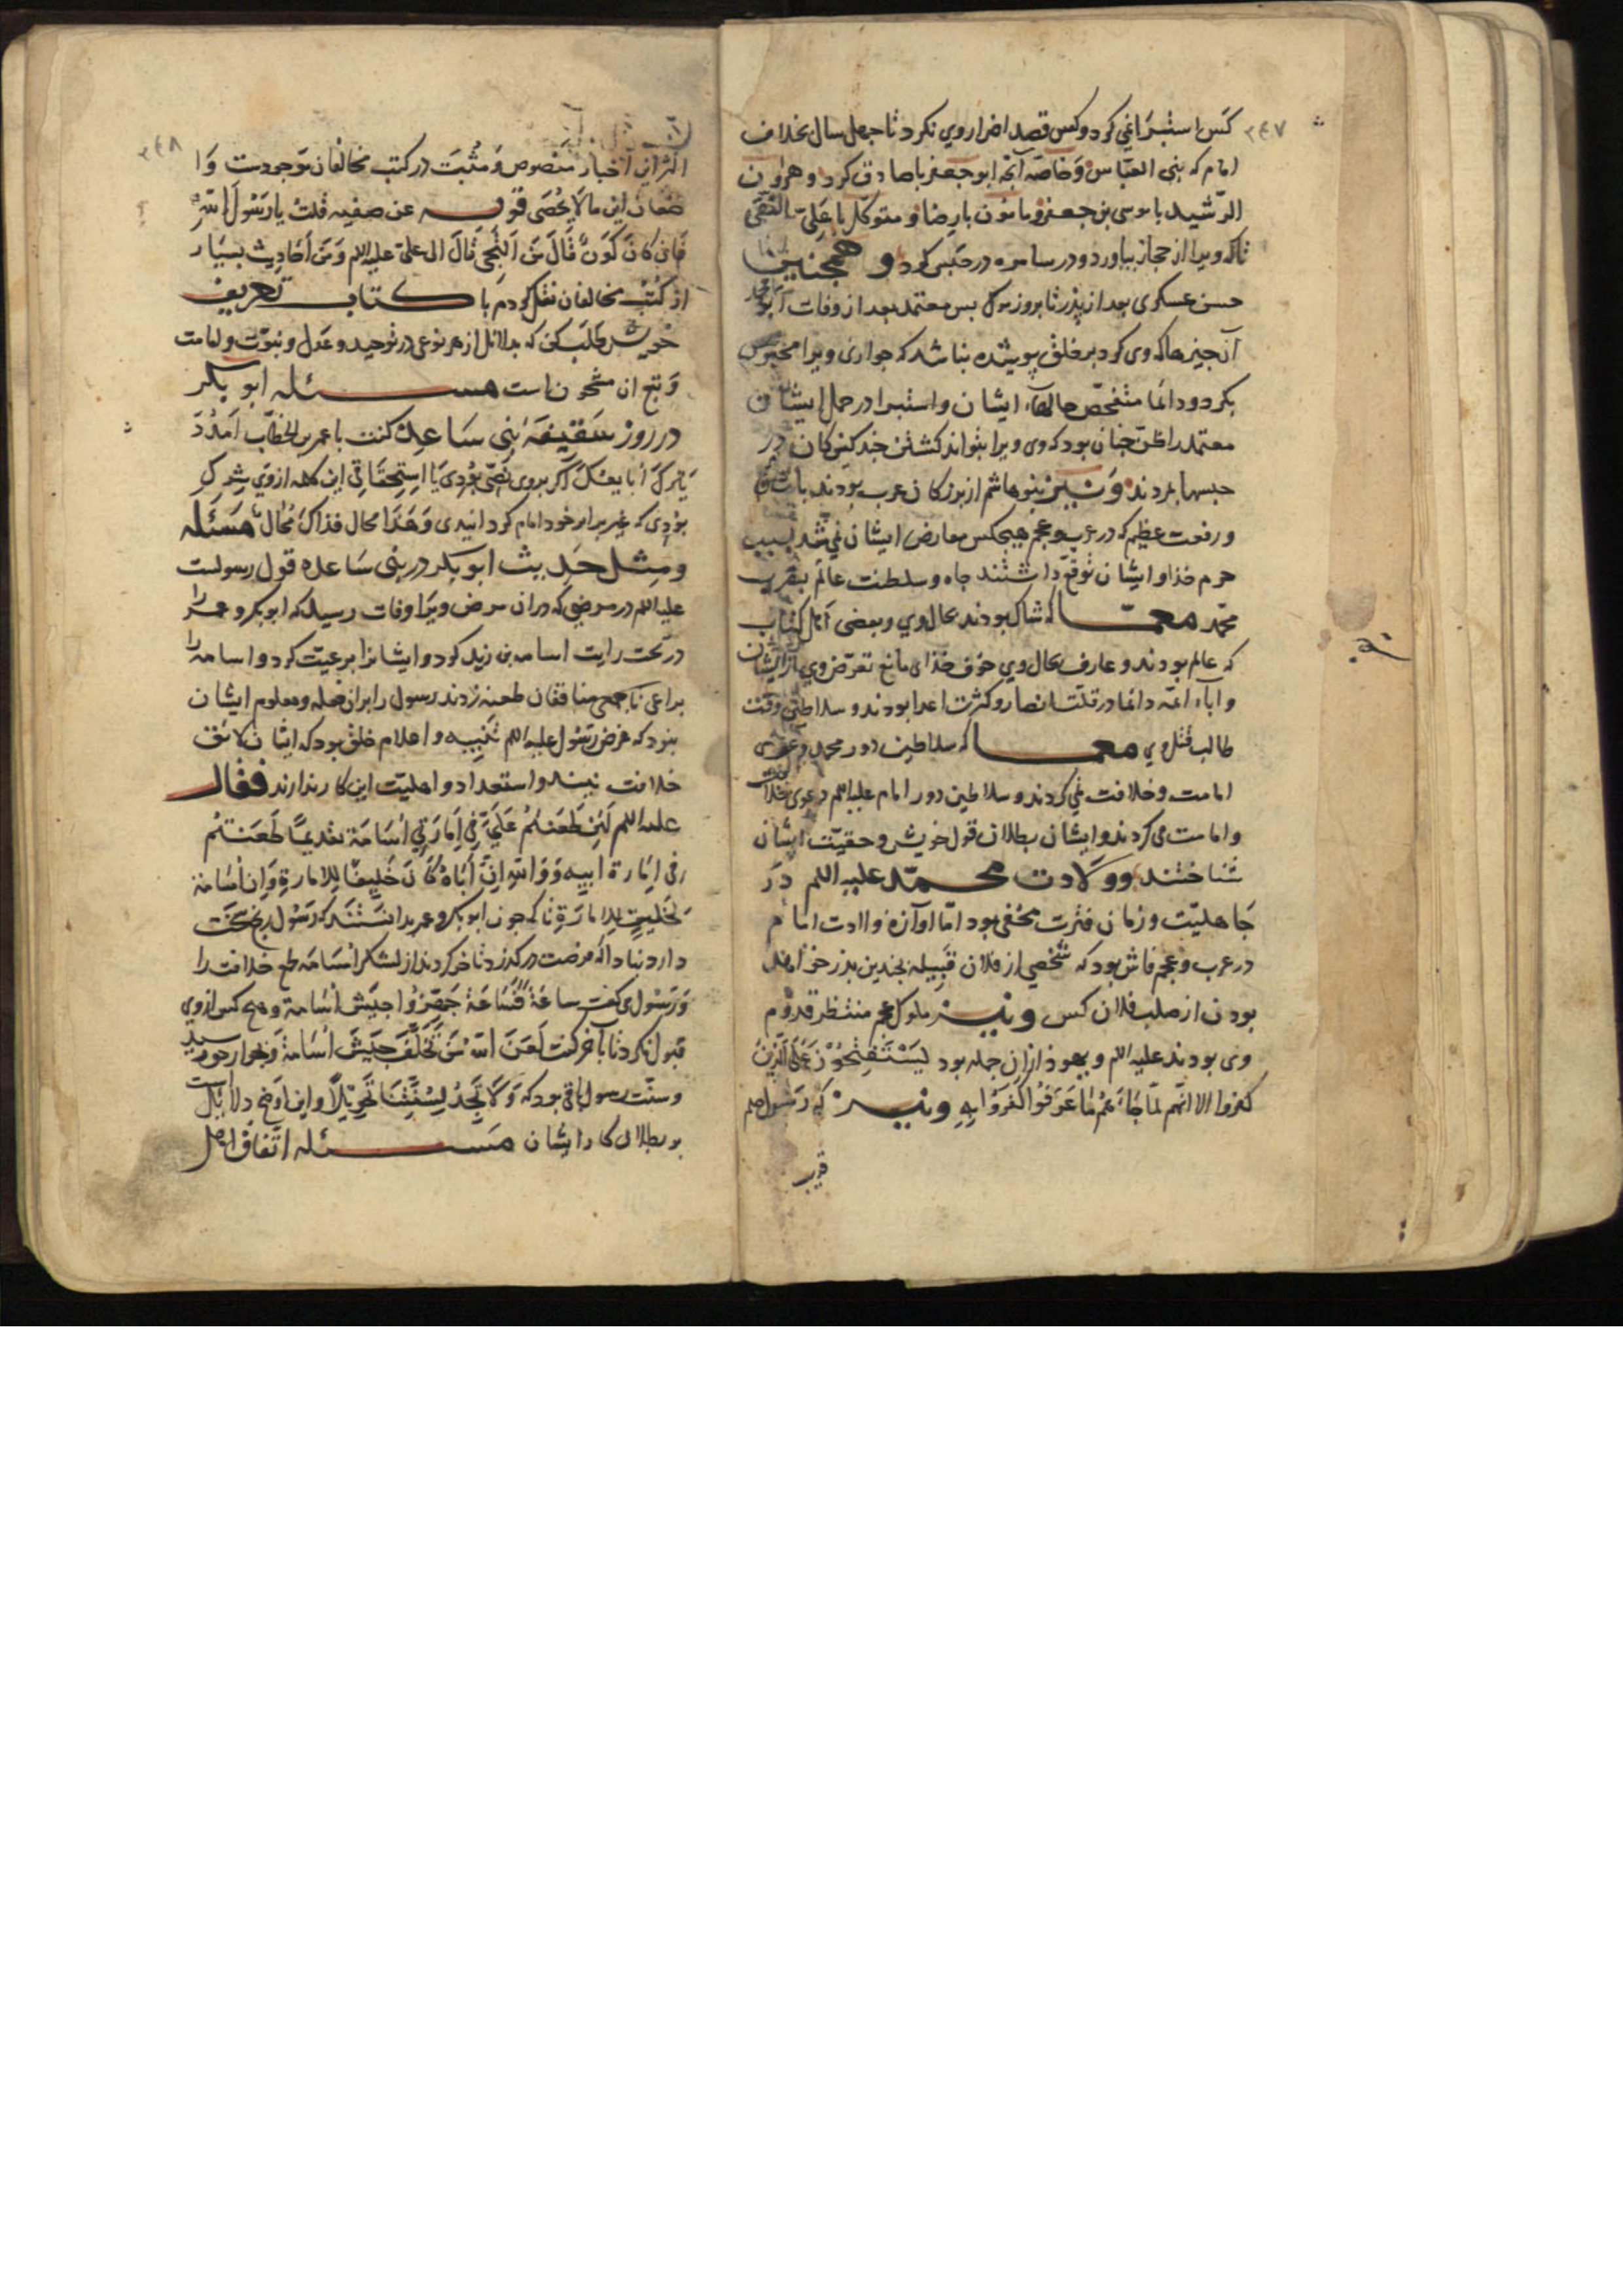 ۲۴۷
کس استبرا نمی کرد و کس قصد اضرار وی نکرد تا چهل سال بخلاف
امام که بنی العباس و خاصه آنچه ابو جعفر با صادق کرد و هرون
الرشید با موسی بن جعفر و مامون با رضا و متوکل با علی النقی
تا که ویرا از حجاز بیاورد و در سامره در حبس کرد و همچنین با
حسن عسکری بعد از پدر تا بروز مرک بس معتمد بعد از وفات ابو
آن چیزها که وی کرد بر خلق پوشیده نباشد که جواری ویرا محبوس
بکرد و دائما متفحص حالهاء ایشان و استبرا در حمل ایشان
معتمد را ظن جنان بود که وی ویرا بتواند کشتن جند کنیزکان در
حبسها بمردند و نیز بنو هاشم از بزرکان عرب بودند با
و رفعت عظیم که در عرب و عجم هیچکس معارض ایشان نمی شد بسبب
حرم خدا و ایشان توقع داشتند جاه و سلطنت عالم بقرب
محمد معما که شاک بودند بحال وی و بعضی اهل کتاب
که عالم بودند و عارف بحال وی خوف خدای مانع تعرض وی بود ایشان
و آباء ائمه دائما در قلت انصار و کثرت اعدا بودند و سلاطین وقت
طالب قتل وی معما که سلاطین دور محمد دعوی
امامت و خلافت نمی کردند و سلاطین دور امام علیه السلم دعوی خلافت
و امامت می کردند و ایشان بطلان قول خویش و حقیت ایشان
شناختند و ولادت محمد علیه السلم در
جاهلیت و زمان فترت مخفی بود اما اوازه ولادت امام
در عرب و عجم فاش بود که شخصی از فلان قبیله بچندین پدر خواهد
بودن از صلب فلان کس و نیز ملوک عجم منتظر قدوم
وی بودند علیه السلم و یهود از این جمله بود لیستفتحون علی الذین
کفروا الا انهم لما جاءهم ما عرفوا کفروا به و نیز که رسول صلعم
قریب
۲۴۸
اکثر این اخبار منصوص و مثبت در کتب مخالفان موجودست و
ضعاف این ما لا یحصی قوله عن صفیه قلت یا رسول الله
فان کان کون قال من النجی قال الی علی علیه السلم و من احادیث بسیار
از کتب مخالفان نقل کردم با کتاب تعریف
خویش طلب کن که بدلائل از هر نوعی در توحید و عدل و نبوت و امامت
و تبع آن مشحون است مسئله ابو بکر
در روز سقیفه بنی ساعده کفت با عمر بن الخطاب امدد
یدک ابایعک اکر بروی نصی بودی یا استحقاقی این کلمه از وی شرک
بودی که غیر برابر خود امام کردانیدی و هذا محال فذاک محال مسئله
و مثل حدیث ابو بکر در بنی ساعده قول رسولست
علیه السلم در مرضی که در ان مرض ویرا وفات رسید که ابو بکر و عمر را
در تحت رایت اسامه بن زید کرد و ایشانرا برعیت کرد و اسامه را
براعی تا جمعی منافقان طعنه زدند رسول را بر ان فعله و معلوم ایشان
نبود که غرض رسول علیه السلم تنبیه و اعلام خلق بود که ایشان لائق
خلافت نیند و استعداد و اهلیت این کار ندارند فقال
علیه السلم لئن طعنتم علی فی امارتی اسامة فقدیما طعنتم
فی امارة ابیه و والله ان اباه کان خلیقا للامارة و ان اسامة
لخلیق للامارة تا که چون ابو بکر و عمر بدانستند که رسول
دار دنیا دانه فرصت در
و رسول می کفت ساعة فساعة جهزوا جیش اسامة و هیچ کس از وی
قبول نکرد تا باخر کفت لعن الله من تخلف جیش اسامة و بجوار حق رسید
و سنت رسول باقی بود که و لا تجد لسنتنا تحویلا و این اوضح دلائل است
بر بطلان کار ایشان مسئله اتفاق اهل